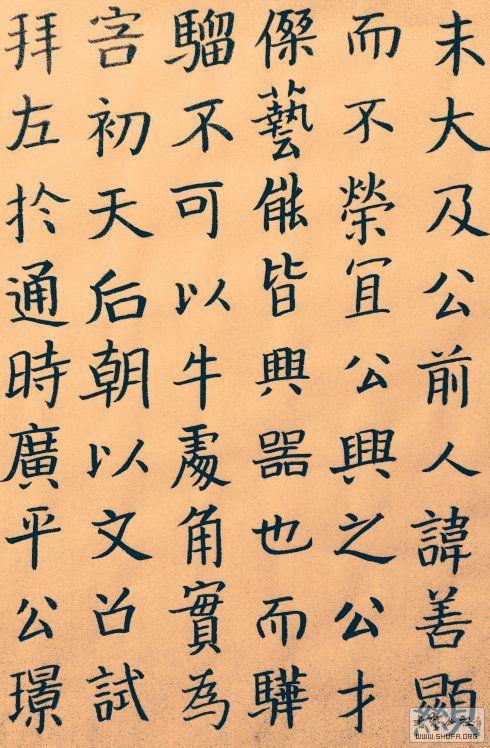 未大及公前人諱善顯
而不榮冝公興之公才
傑藝能皆興器也而驊
騮不可以牛處角實為
害初天后朝以文召試
拜左於通時廣平公璟
WWW.SHUFA.ORG